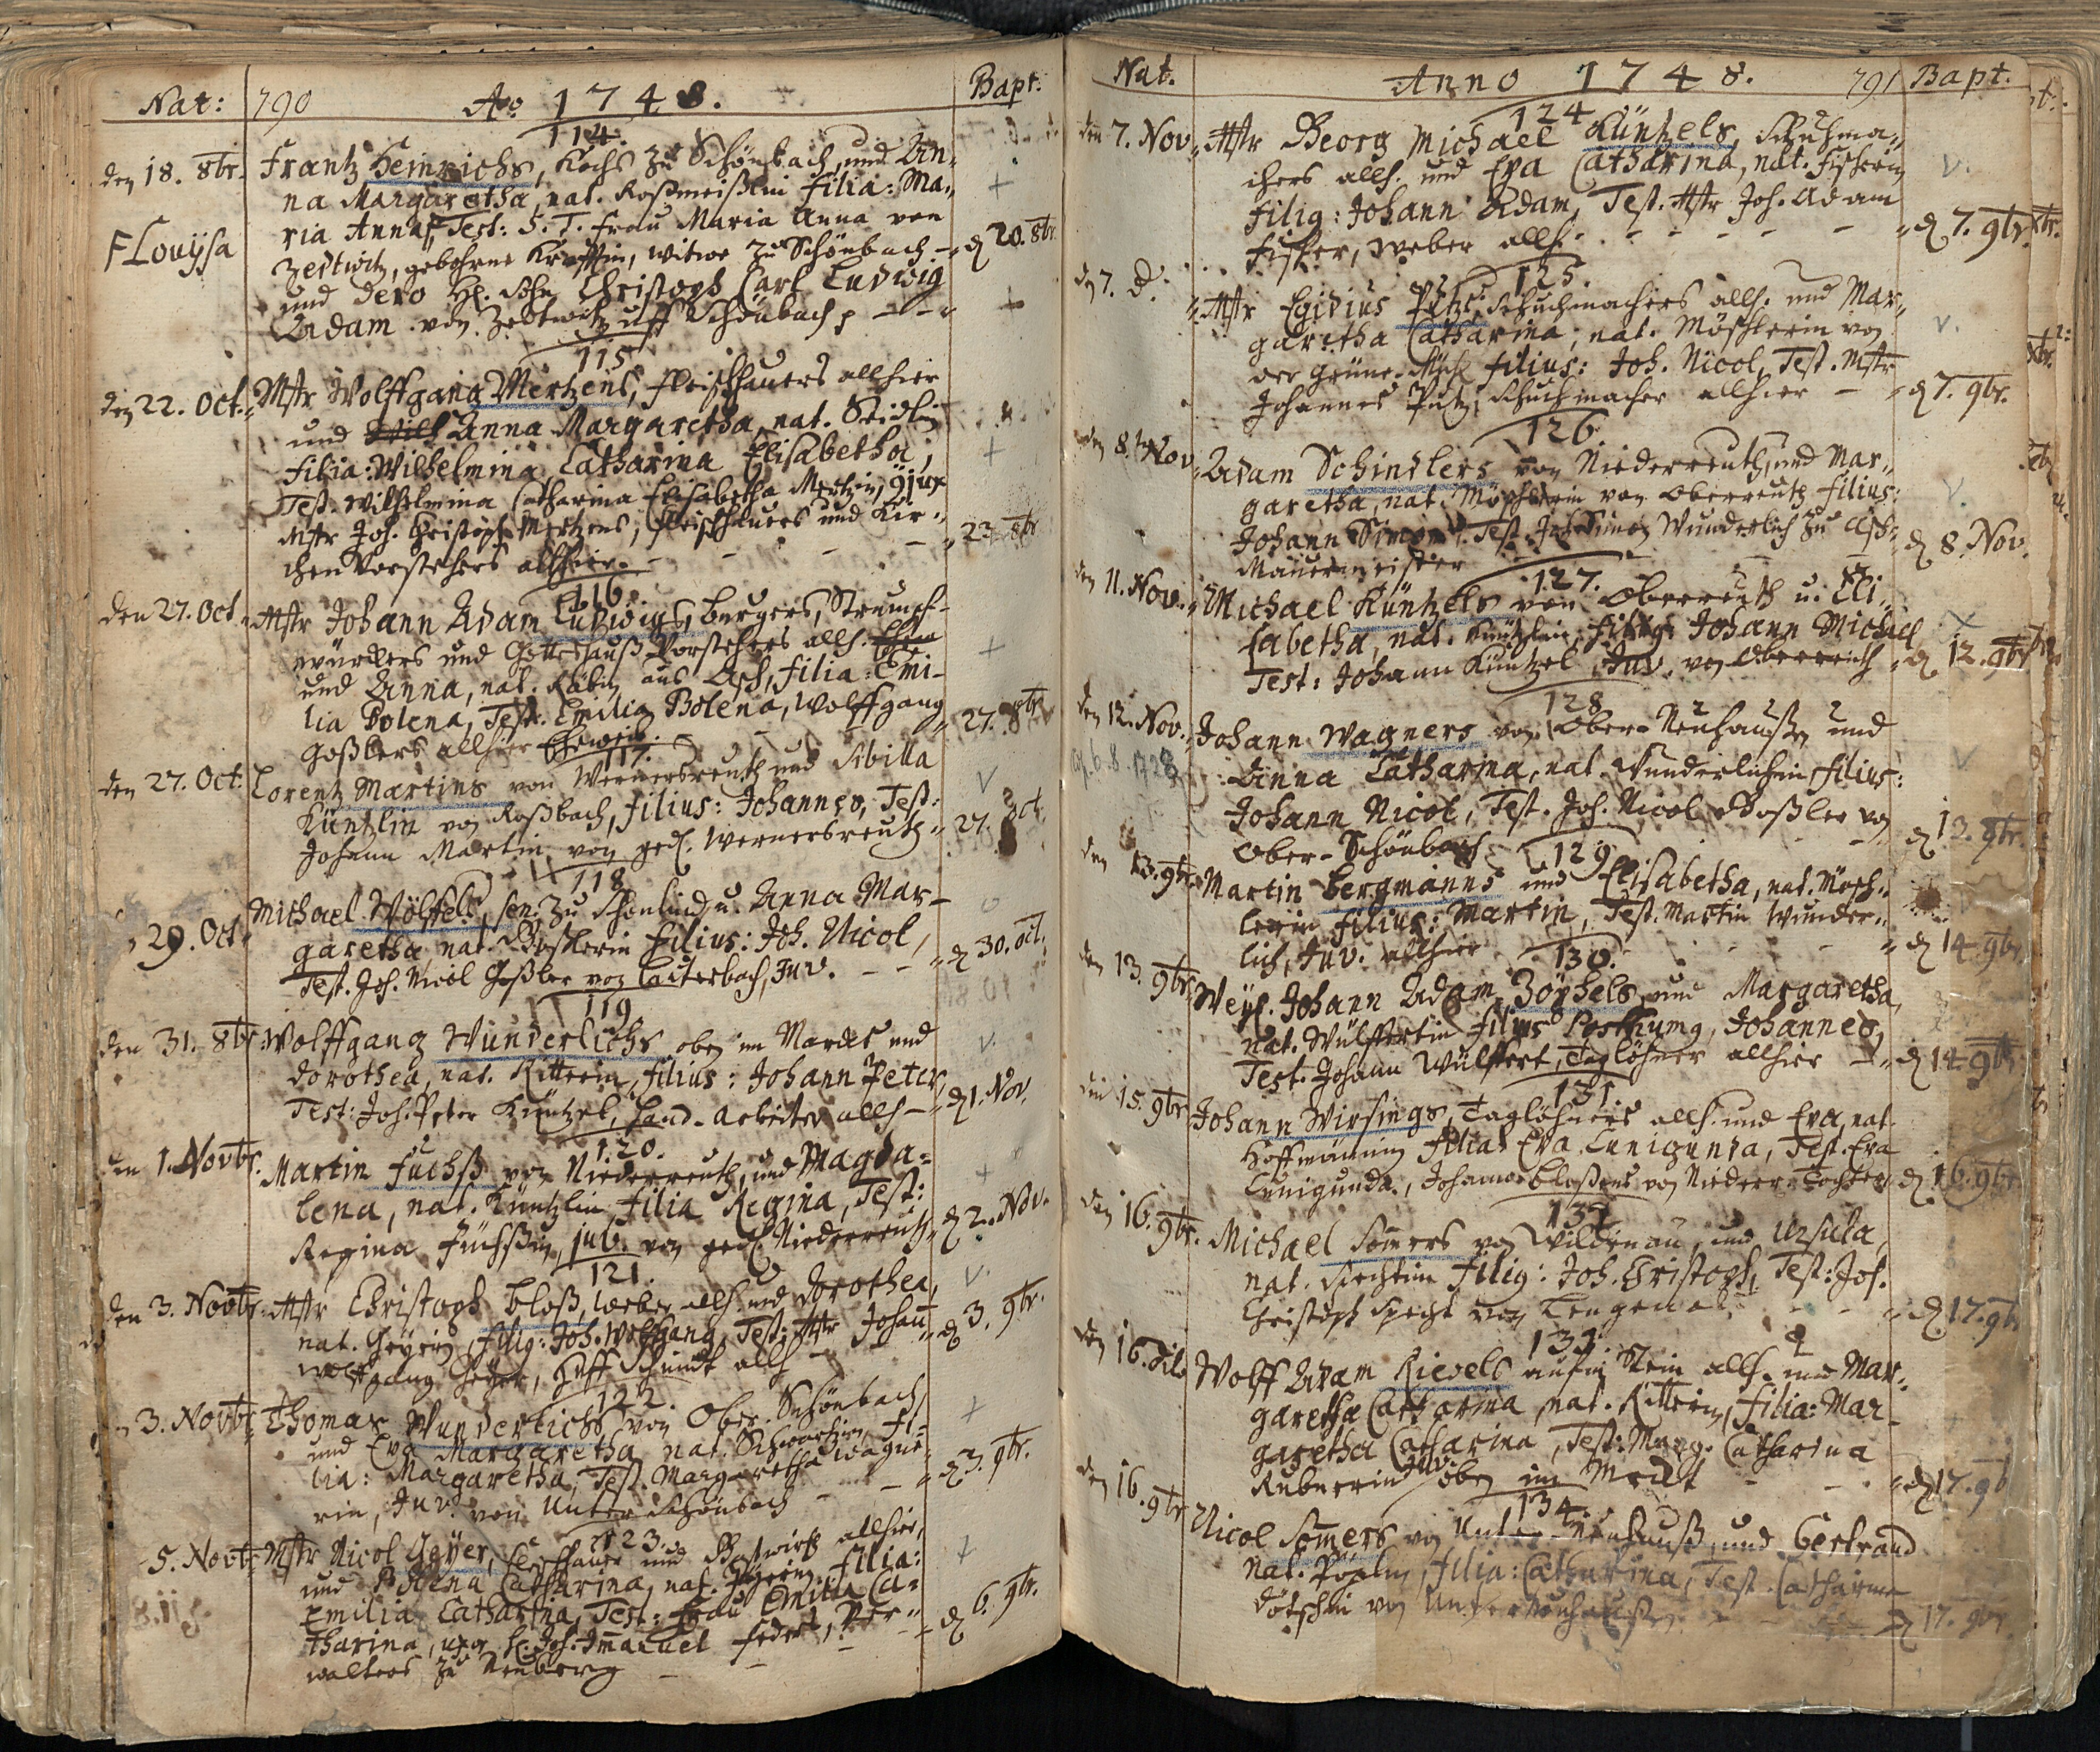 Nat: 790 Ao 1748. Bapt.
114.
den 18. 8br. Frantz Heinrichs, Kochs zu Schönbach, und An-
na Margaretha, nat. Roßmeißlin filia: Ma-
ria Anna, Test: S. T. Frau Maria Anna von
F Louysa
Zedtwitz, gebohrne, witwe zu Schönbach - d 20. 8br.
und dero H. Sohn Christoph Carl Ludwig
Adam von Zedtwitz uff Schönbach
115
den 22. Oct. Mstr Wolffgang Mertzens, Fleischhauers allhier
und Anna Margaretha, nat. Seidlin
filia: Wilhelmina Catharina Elisabetha,
Test. Wilhelmina Catharina Elisabetha Mertzin,
Mstr Joh. Christoph Mertzens, Fleischhauers und Kir-
chen Vorstehers allhier. - - - 23. 8br
116.
den 27. Oct. Mstr Johann Adam Ludwigs, burgers, Strumpf-
würckers und Gotteshauß Vorstehers allh.
und Anna, nat. Räbin aus Asch, filia: Emi-
lia Polena, Test. Emilia Polena, Wolffgang
Goßlers allhier Eheweib. 27. 8br
117.
den 27. Oct. Lorentz Martins von Wernersreuth und Sibilla
Küntzlin von Roßbach, filius: Johannes, Test:
Johann Martin von ged. Wernersreuth - 27. Oct.
118
29. Oct. Michael Wölffels, sen. zu Schönlind u. Anna Mar-
garetha, nat. Goßlerin filius: Joh. Nicol,
Test. Joh. Nicol Goßler von Lauterbach, Juv. - - d 30. Oct.
119
den 31. 8br Wolffgang Wunderlichs oben im Marckt und
Dorothea, nat. Ritterin, filius: Johann Peter,
Test: Joh. Peter Küntzel, Hand-Arbeiter allh - d 1. Nov.
120.
den 1. Novbr. Martin Fuchß von Niederreuth, und Magda-
lena, nat. Küntzlin filia Regina, Test:
Regina Füchßin, jub. von ged. Niederreuth d 2. Nov.
121.
den 3. Novbr. Mstr Christoph Bloß, Weber allh. und Dorothea,
nat. Geyerin, filig: Joh. Wolffgang, Test: Mstr Johann
Wolffgang Geyer, Huff Schmidt allh - d 3. 9br.
122.
3. Novbr. Thomas Wunderlichs von Ober-Schönbach
und Eva Margaretha nat. fi-
lia: Margaretha, Test. Margaretha Wagne-
rin, Juv. von Unter Schönbach - - d 3. 9br.
123.
5. Novbr. Mstr Nicol Geyer, Fleischhauer und Gastwirth allhier,
und Polena Catharina, nat. filia:
Emilia Catharina, Test: Frau Emilia Ca-
tharina, uxor H. Joh. Immanuel Federl, Ver- d 6. 9br.
walters zu Neuberg - -
Nat. Anno 1748. 791 Bapt.
124
den 7. Nov. Mstr Georg Michael Küntzels, Schuhma-
chers allh. und Eva Catharina, nat. Fischerin
filig: Johann Adam, Test. Mstr Joh. Adam
Fischer, Weber allh. - - - - d 7. 9br.
125.
d 7. d. Mstr Egidius Putz, Schuchmachers allh. und Mar-
garetha Catharina, nat. Möschlerin von
der Grüne filius: Joh. Nicol, Test. Mstr
Johannes Putz, Schuchmacher allhier - d 7. 9br.
126.
den 8. Nov. Adam Schindlers von Niederreuth, und Mar-
garetha, nat. Möschlerin von Oberreuth filius:
Johann Simon. Test. Joh. Simon Wunderlich zu Asch d 8. Nov.
Mauermeister
127.
den 11. Nov. Michael Küntzels von Oberreuth u. Eli-
sabetha, nat. Küntzlin, filig: Johann Michael
Test: Johann Küntzel, Juv. von Oberreuth d 12. 9br
128
den 12. Nov. Johann Wagners von Ober-Neuhaußen und
Anna Catharina, nat. Wunderlichin filius:
Johann Nicol, Test. Joh. Nicol Goßler von
Ober-Schönbach d 13. 9br.
129
den 13. 9br. Martin Bergmanns und Elisabetha, nat. Mösch-
lerin filius: Martin, Test. Martin Wunder-
lich, Juv. allhier - - - d 14. 9br.
130.
den 13. 9br. Weyl. Johann Adam Zöphels und Margaretha,
nat. Wülffertin filius Posthumg, Johannes,
Test. Johann Wülffert, Taglöhner allhier - d 14. 9br
131.
den 15. 9br Johann Wirsings, Taglöhners allh. und Eva, nat.
Hoffmännin filia Eva Cunigunda, Test. Eva
Cunigunda, Johannes Bloßens von Niederr. Tochter d 16. 9br.
132
den 16. 9br. Michael Somers von Wildenau, und Ursula,
nat. filig: Joh. Christoph, Test: Joh.
Christoph Specht von - - - d 17. 9br
133.
den 16. dito Wolff Adam Kievels aufm Stein allh. und Mar-
garetha Catharina, nat. Ritterin, filia: Mar-
garetha Catharina, Test: Marg. Catharina
Rubnerin Juv. oben im Marckt - - d 17. 9b
134.
den 16. 9br Nicol Somers von Unter-Neuhauß, und Gertraud
nat. filia: Catharina, Test. Catharina
von Unterneuhaußen - - d 17. 9br.